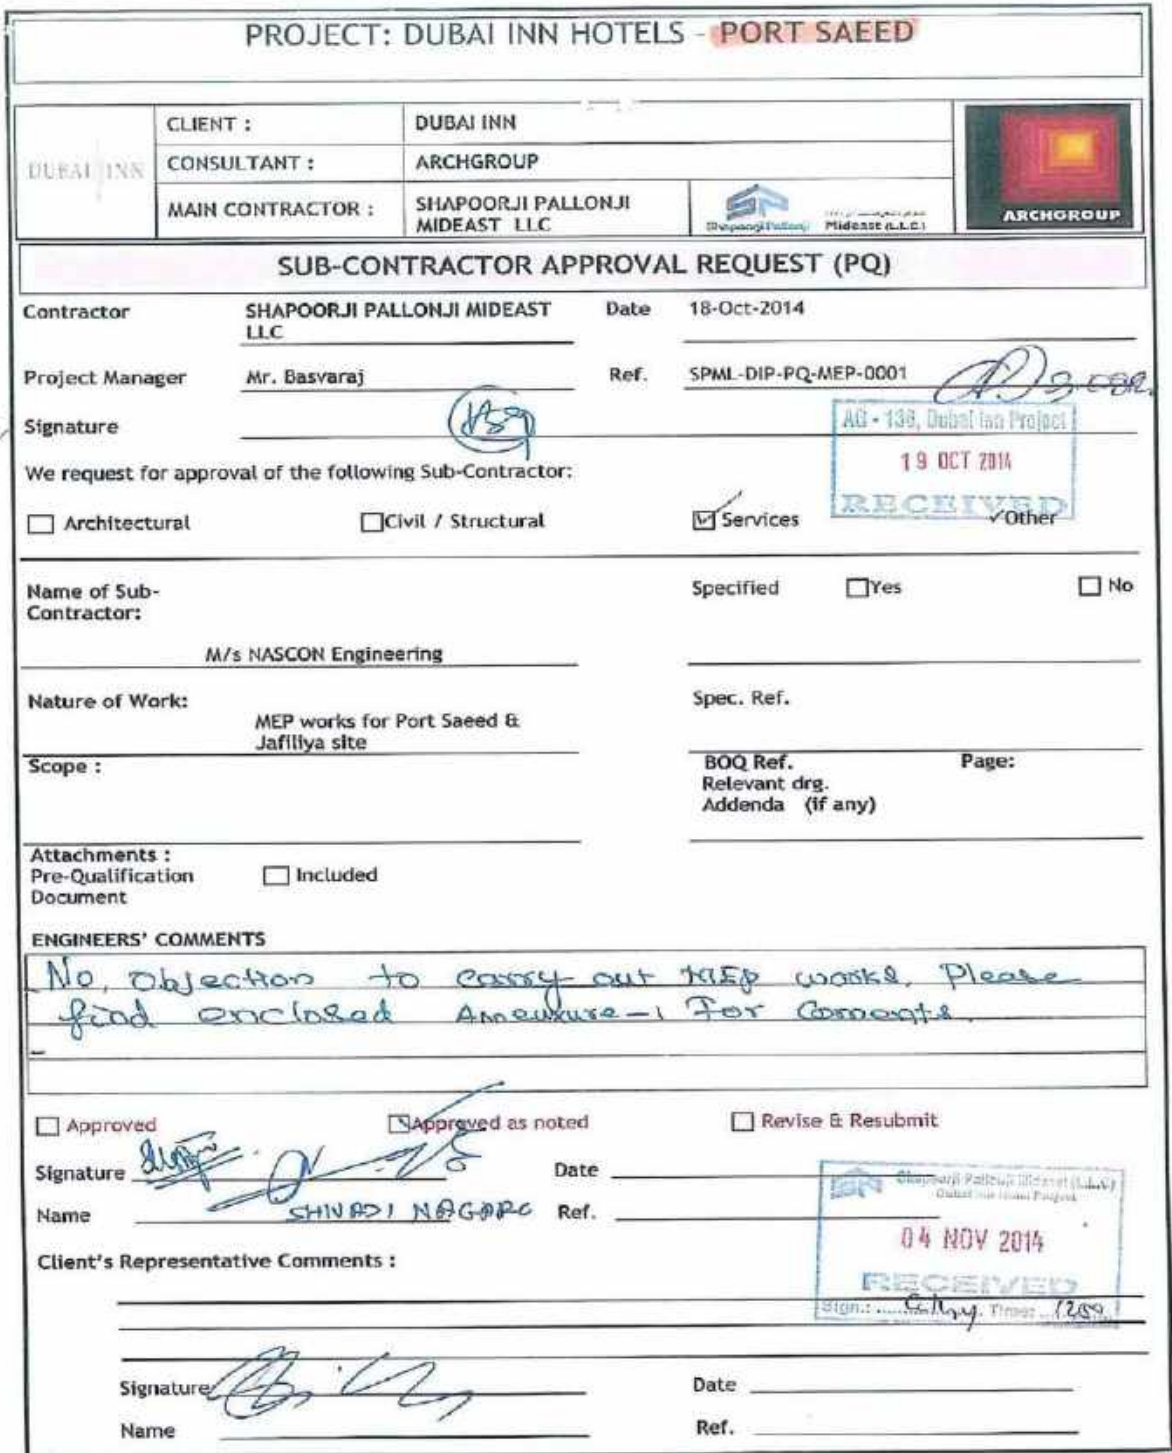 PROJECT: DUBAI INN HOTELS - PORT SAEED
DUBAI INN
CLIENT : DUBAI INN
CONSULTANT : ARCHGROUP
MAIN CONTRACTOR : SHAPOORJI PALLONJI
MIDEAST LLC
Shapoorji Pallonji Mideast (L.L.C.)
ARCHGROUP
SUB-CONTRACTOR APPROVAL REQUEST (PQ)
Contractor SHAPOORJI PALLONJI MIDEAST Date 18-Oct-2014
LLC
Project Manager Mr. Basvaraj Ref. SPML-DIP-PQ-MEP-0001
Signature
AG - 136, Dubai Inn Project
19 OCT 2014
RECEIVED
We request for approval of the following Sub-Contractor:
Architectural Civil / Structural Services Other
Name of Sub- Specified Yes No
Contractor:
M/s NASCON Engineering
Nature of Work: Spec. Ref.
MEP works for Port Saeed &
Jafiliya site
Scope : BOQ Ref. Page:
Relevant drg.
Addenda (if any)
Attachments :
Pre-Qualification Included
Document
ENGINEERS' COMMENTS
No, objection to carry out MEP works. Please
find enclosed Annexure-1 For Coments.
Approved Approved as noted Revise & Resubmit
Signature Date
Name SHIVAJI Ref.
Shapoorji Pallonji Mideast (L.L.C)
Dubai Inn Hotel Project
04 NOV 2014
RECEIVED
Sign.: Time:
Client's Representative Comments :
Signature Date
Name Ref.